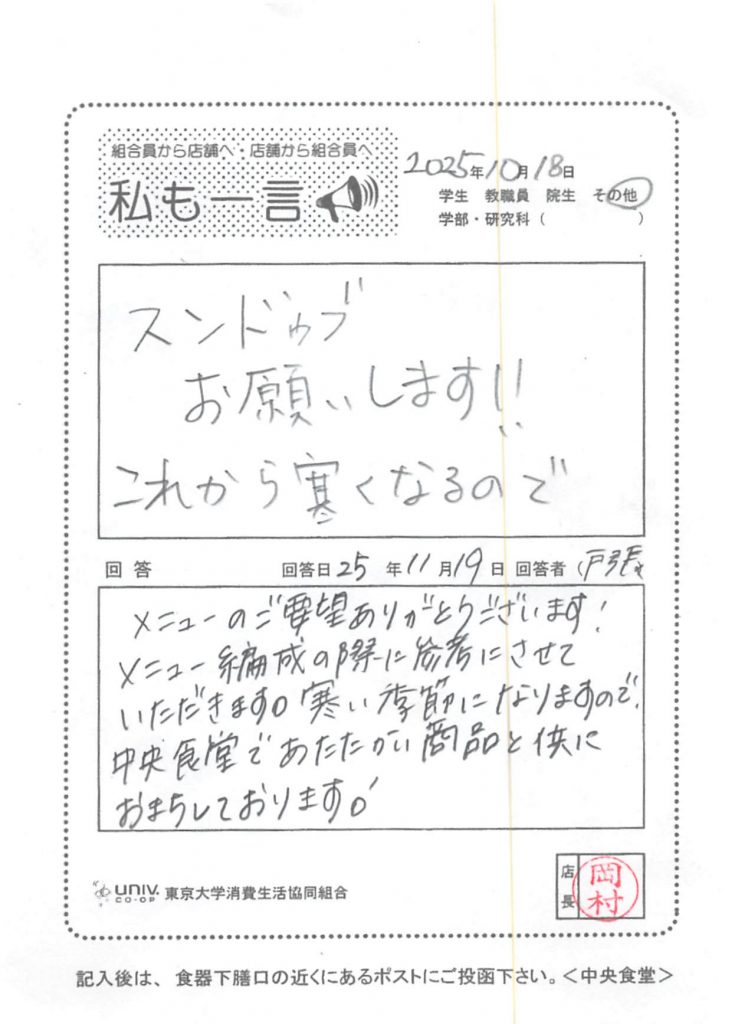 組合員から店舗へ・店舗から組合員へ
私も一言
2025年10月18日
学生 教職員 院生 その他
学部・研究科（ ）
スンドゥブ
お願いします!!
これから寒くなるので
回答 回答日25年11月19日 回答者 戸張
メニューのご要望ありがとうございます!
メニュー編成の際に参考にさせて
いただきます。寒い季節になりますので、
中央食堂であたたかい商品と供に
おまちしております。
店長
岡村
UNIV.
CO-OP
東京大学消費生活協同組合
記入後は、食器下膳口の近くにあるポストにご投函下さい。＜中央食堂＞